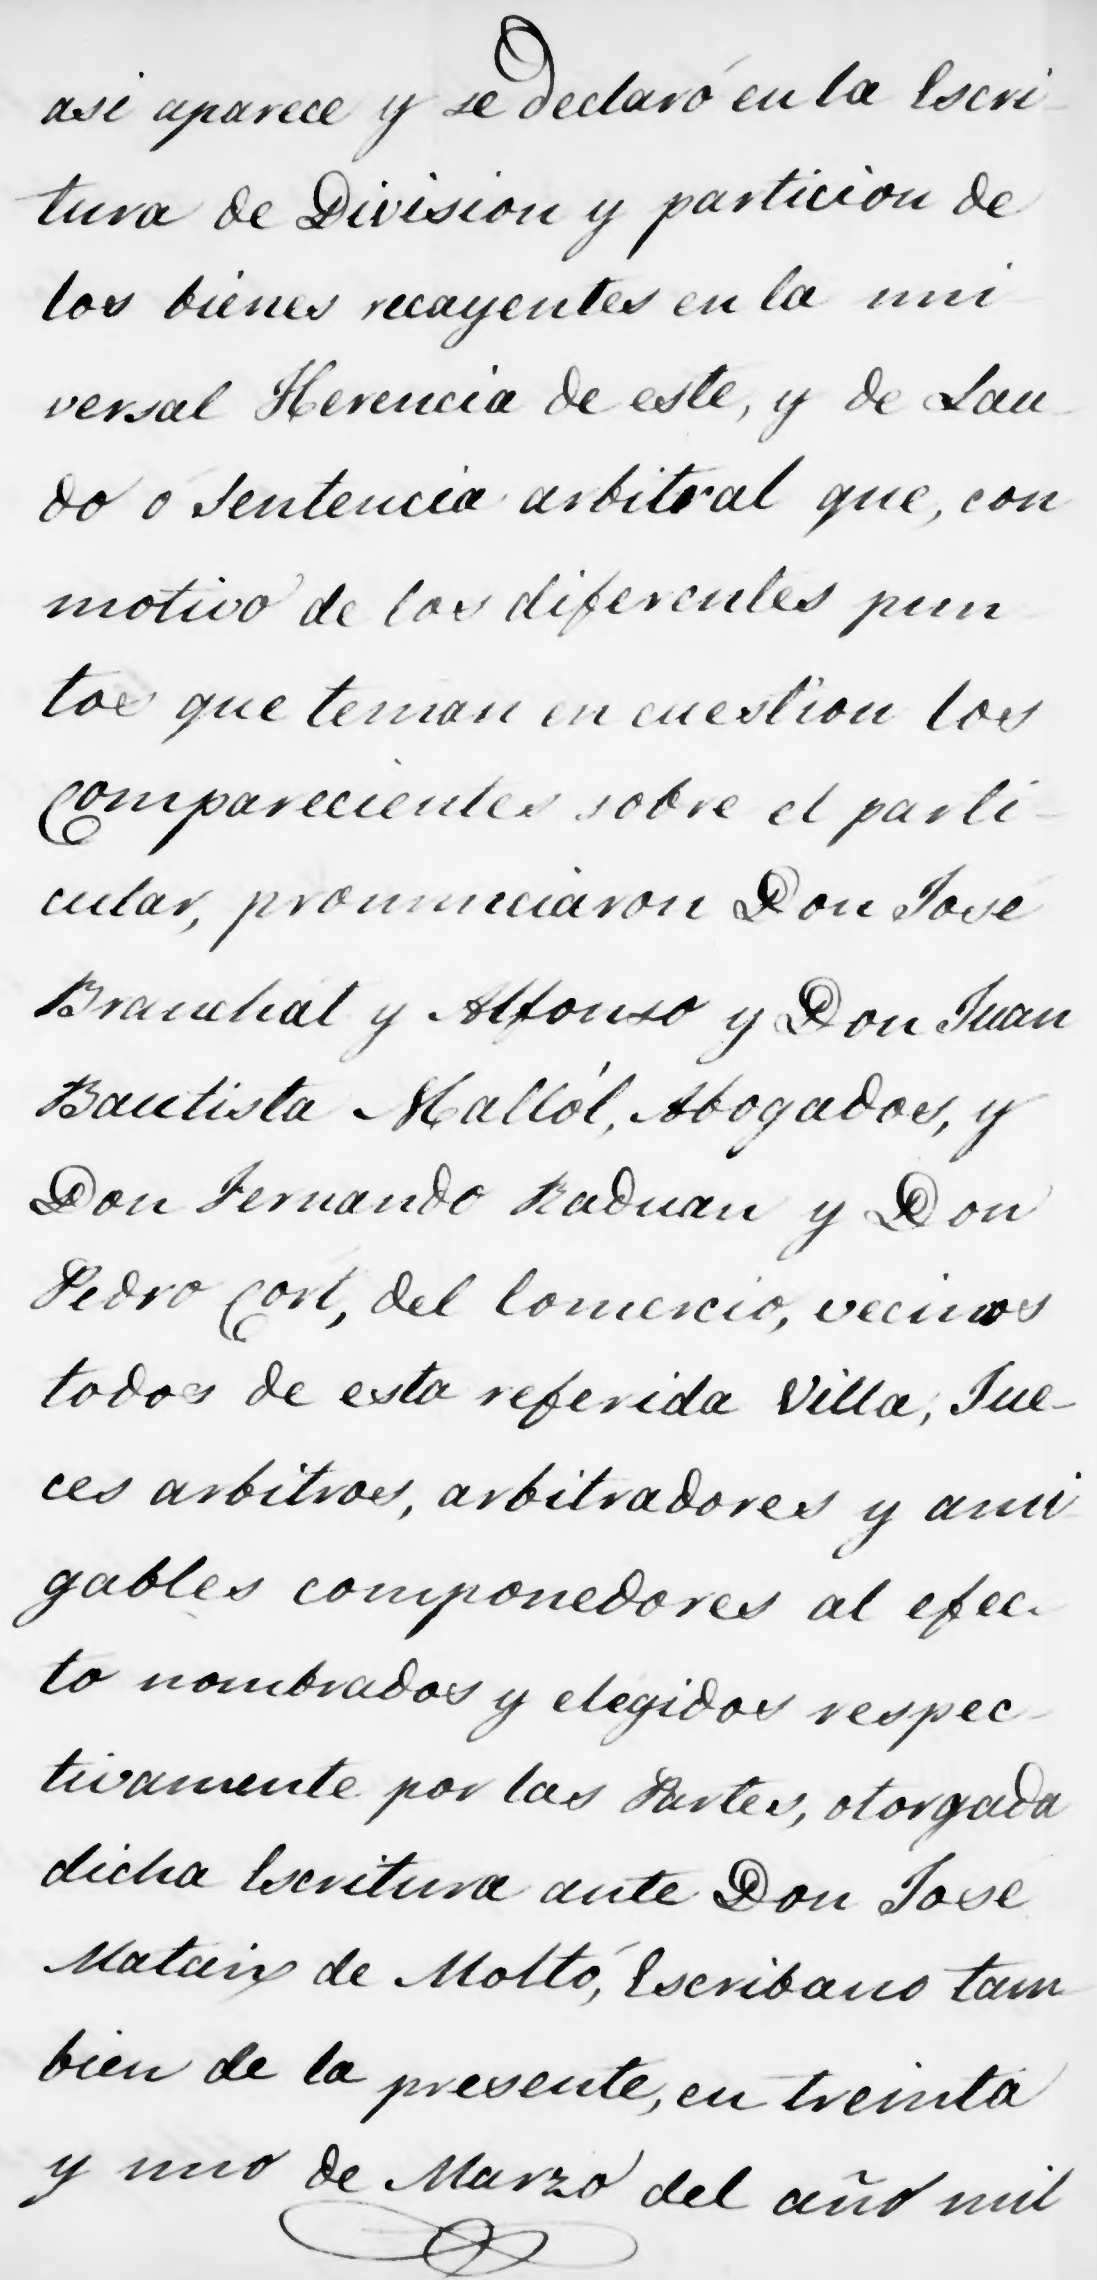 asi aparece y se declaró en la Escri-
tura de Division y particion de
los bienes recayentes en la uni
versal Herencia de este, y de Lau-
do ó Sentencia arbitral que, con
motivo de los diferentes pun
tos que tenian en cuestion los
Comparecientes sobre el parti-
cular, pronunciaron Don José
Branchat y Alfonso y Don Juan
Bautista Mallól, Abogados, y
Don Fernando Raduan y Don
Pedro Cort, del Comercio, vecinos
todos de esta referida Villa, Jue-
ces arbitros, arbitradores y ami
gables componedores al efec-
to nombrados y elegidos respec-
tivamente por las Partes, otorgada
dicha Escritura ante Don José
Mataix de Moltó, Escribano tam
bien de la presente, en treinta
y uno de Marzo del año mil